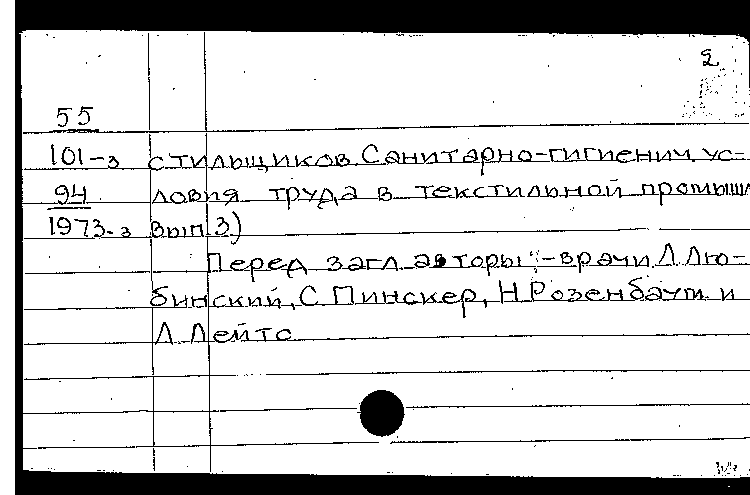 2
55
101-з стильщиков. Санитарно-гигиенич. ус-
94 ловия труда в текстильной промышл
1973-з вып 3)
Перед загл авторы:-врачи Л Лю-
бинский, С. Пинскер, Н Розенбаум и
Л Лейтс